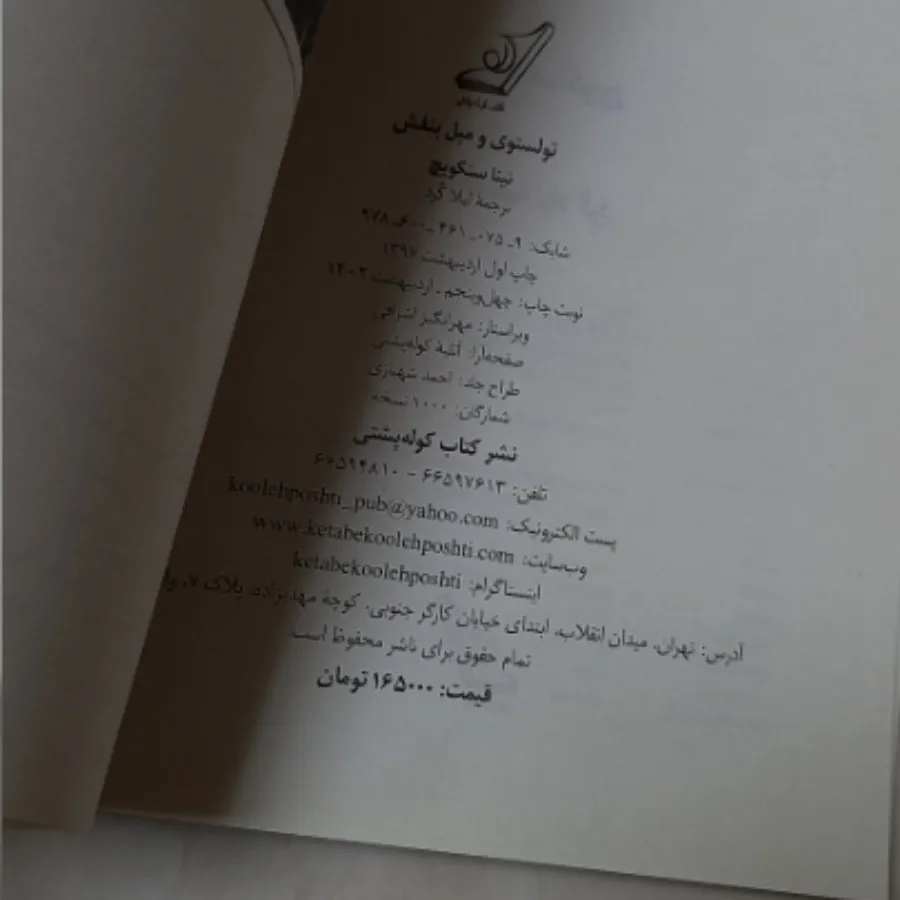 تولستوی و مبل بنفش
نینا سنکویچ
ترجمهٔ لیلا کرد
شابک: ۹ـ ۰۷۵ـ ۴۶۱ ـ۶۰۰ـ ۹۷۸
چاپ اول اردیبهشت ۱۳۹۷
نوبت چاپ: چهل‌وپنجم ـ اردیبهشت ۱۴۰۳
ویراستار: مهرانگیز اشراقی
صفحه‌آرا: آتلیهٔ کوله‌پشتی
طراح جلد: احمد شهبازی
شمارگان: ۱۰۰۰ نسخه
نشر کتاب کوله‌پشتی
تلفن: ۶۶۵۹۷۶۱۳ - ۶۶۵۹۴۸۱۰
پست الکترونیک: koolehposhti_pub@yahoo.com
وب‌سایت: www.ketabekoolehposhti.com
اینستاگرام: ketabekoolehposhti
آدرس: تهران، میدان انقلاب، ابتدای خیابان کارگر جنوبی، کوچهٔ مهدیزاده، پلاک ۷،
تمام حقوق برای ناشر محفوظ است.
قیمت: ۱۶۵۰۰۰ تومان